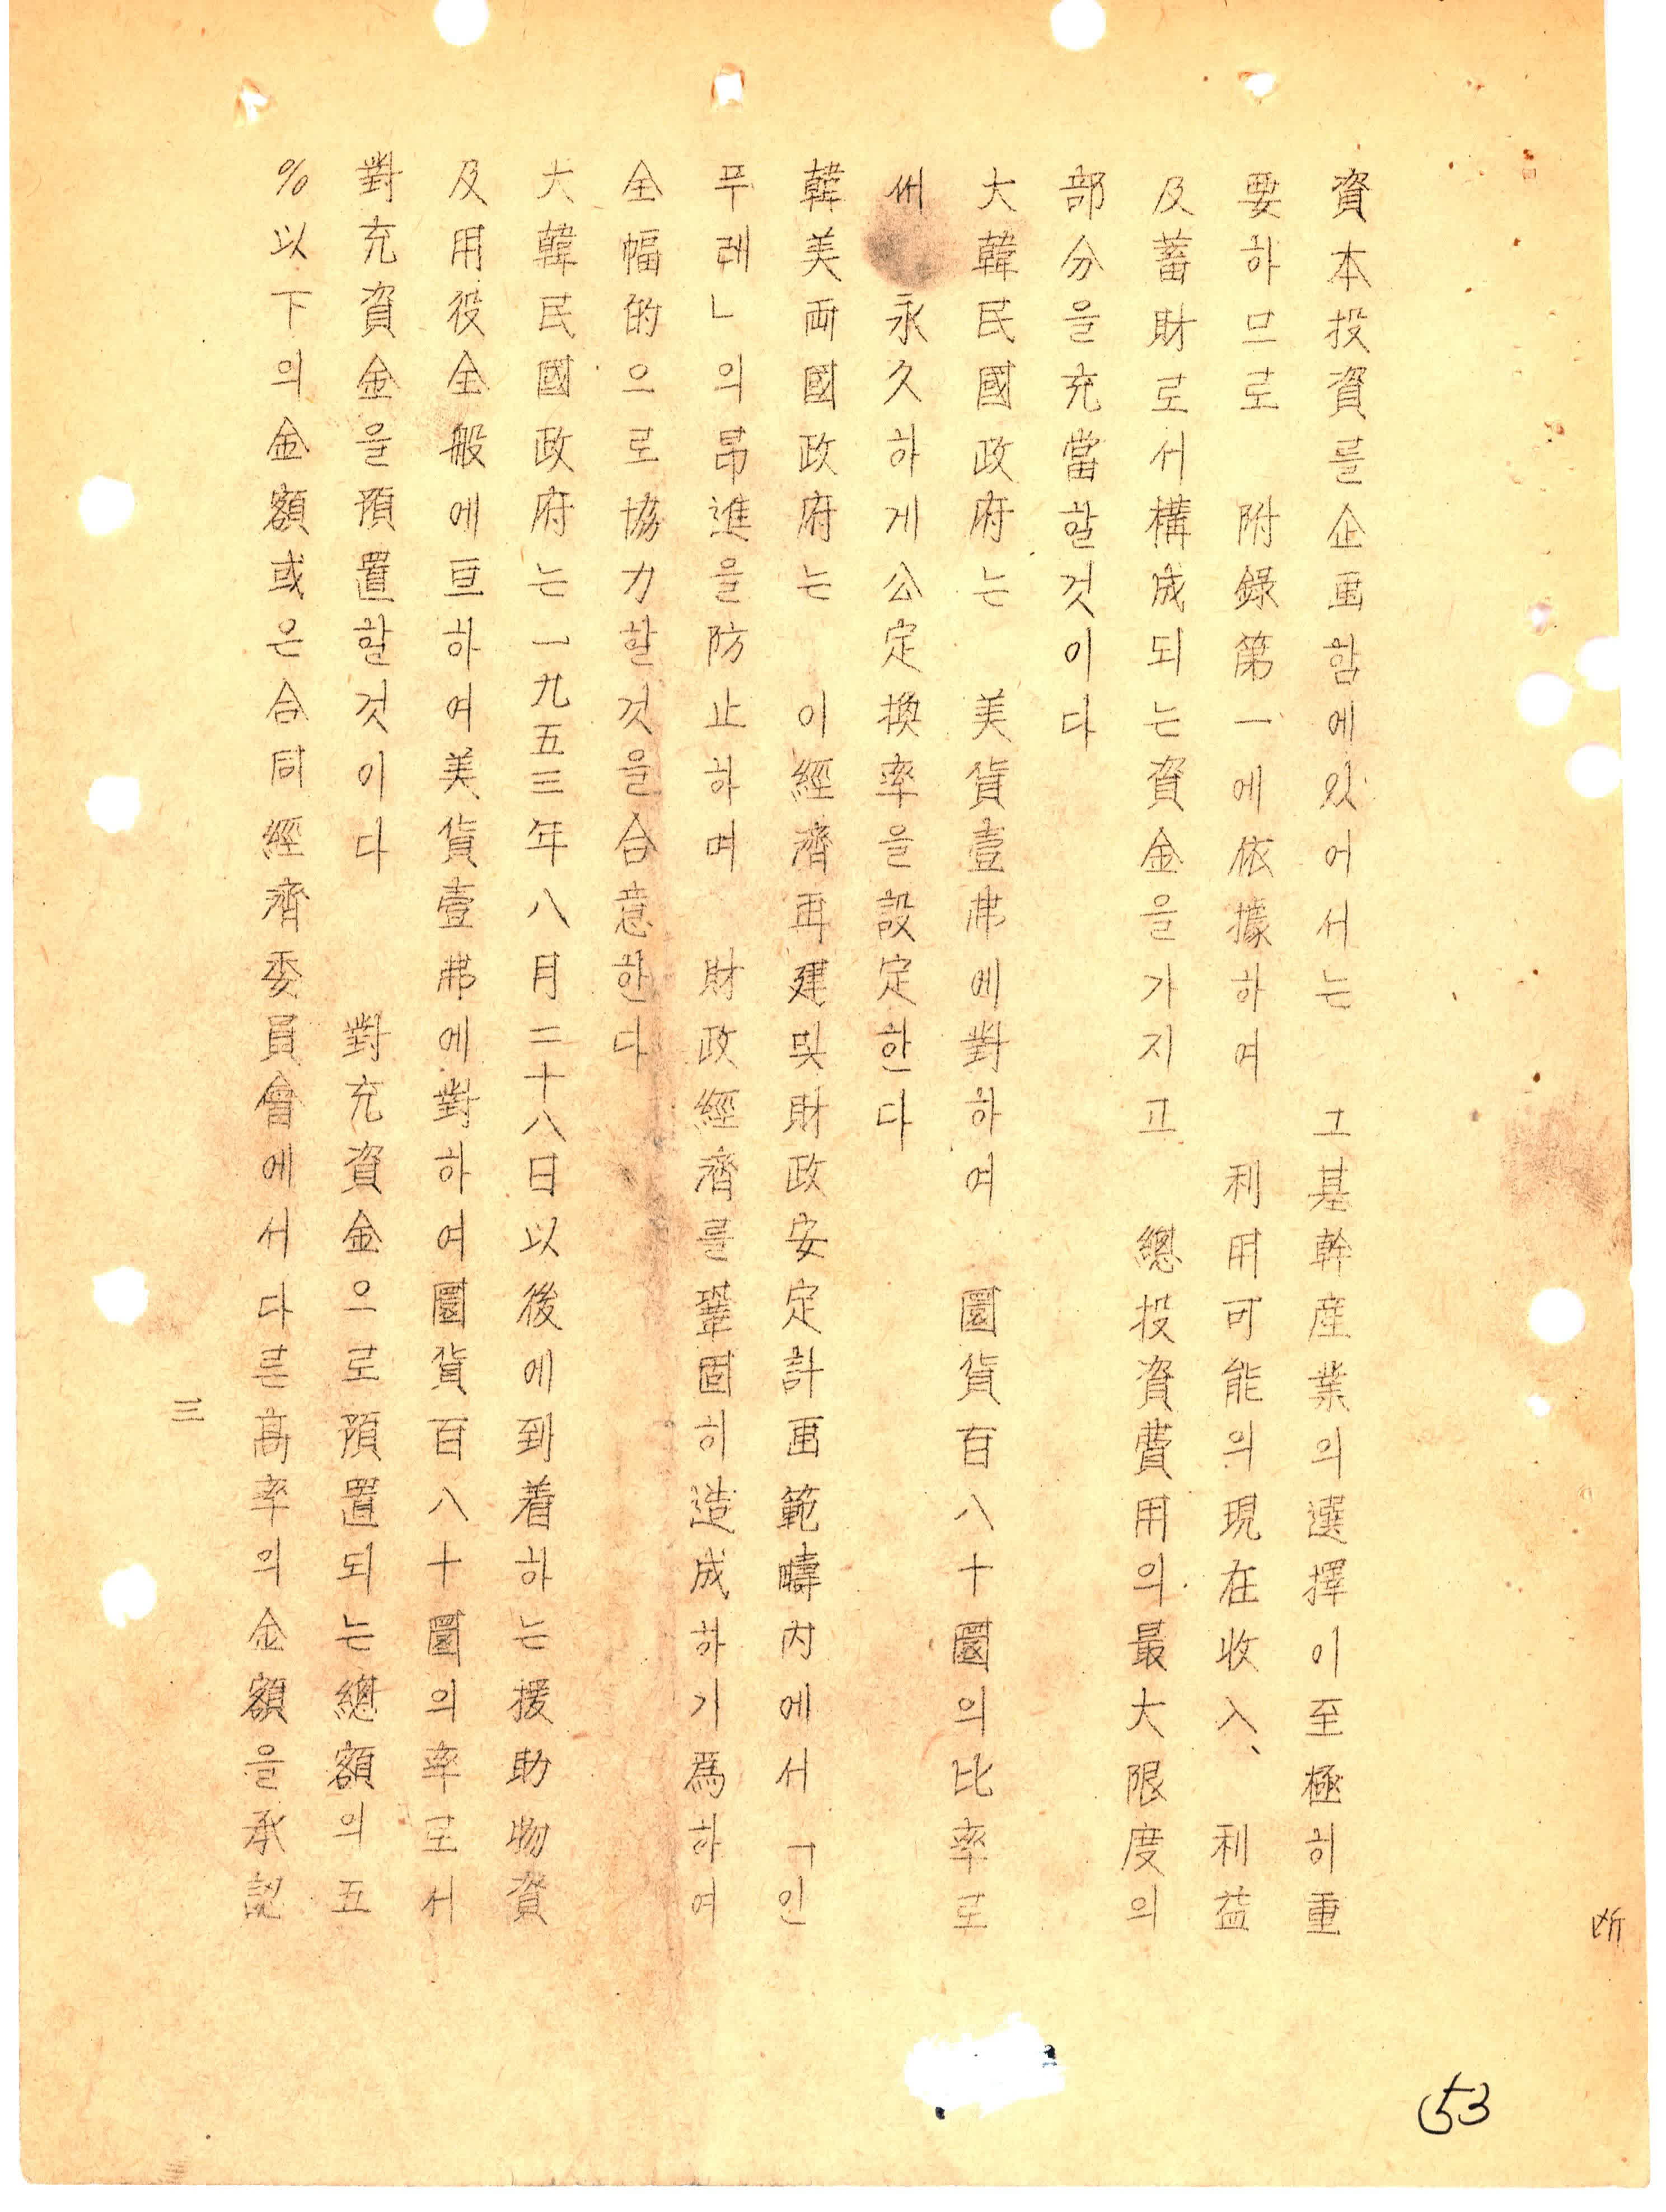 資本投資를企画함에있어서는 그基幹産業의選擇이至極히重
要하므로 附錄第一에依據하여 利用可能의現在收入、利益
及蓄財로서構成되는資金을가지고 總投資費用의最大限度의
部分을充當할것이다
大韓民國政府는 美貨壹弗에對하여 圜貨百八十圜의比率로
서 永久하게公定換率을設定한다
韓美両國政府는 이經濟再建및財政安定計画範疇内에서「인
푸레」의昂進을防止하며 財政經濟를鞏固히造成하기爲하여
全幅的으로協力할것을合意한다
大韓民國政府는一九五三年八月二十八日以後에到着하는援助物資
及用役全般에亘하여美貨壹弗에對하여圜貨百八十圜의率로서
對充資金을預置할것이다 對充資金으로預置되는總額의五
%以下의金額或은合同經濟委員會에서다른高率의金額을承認
三
53